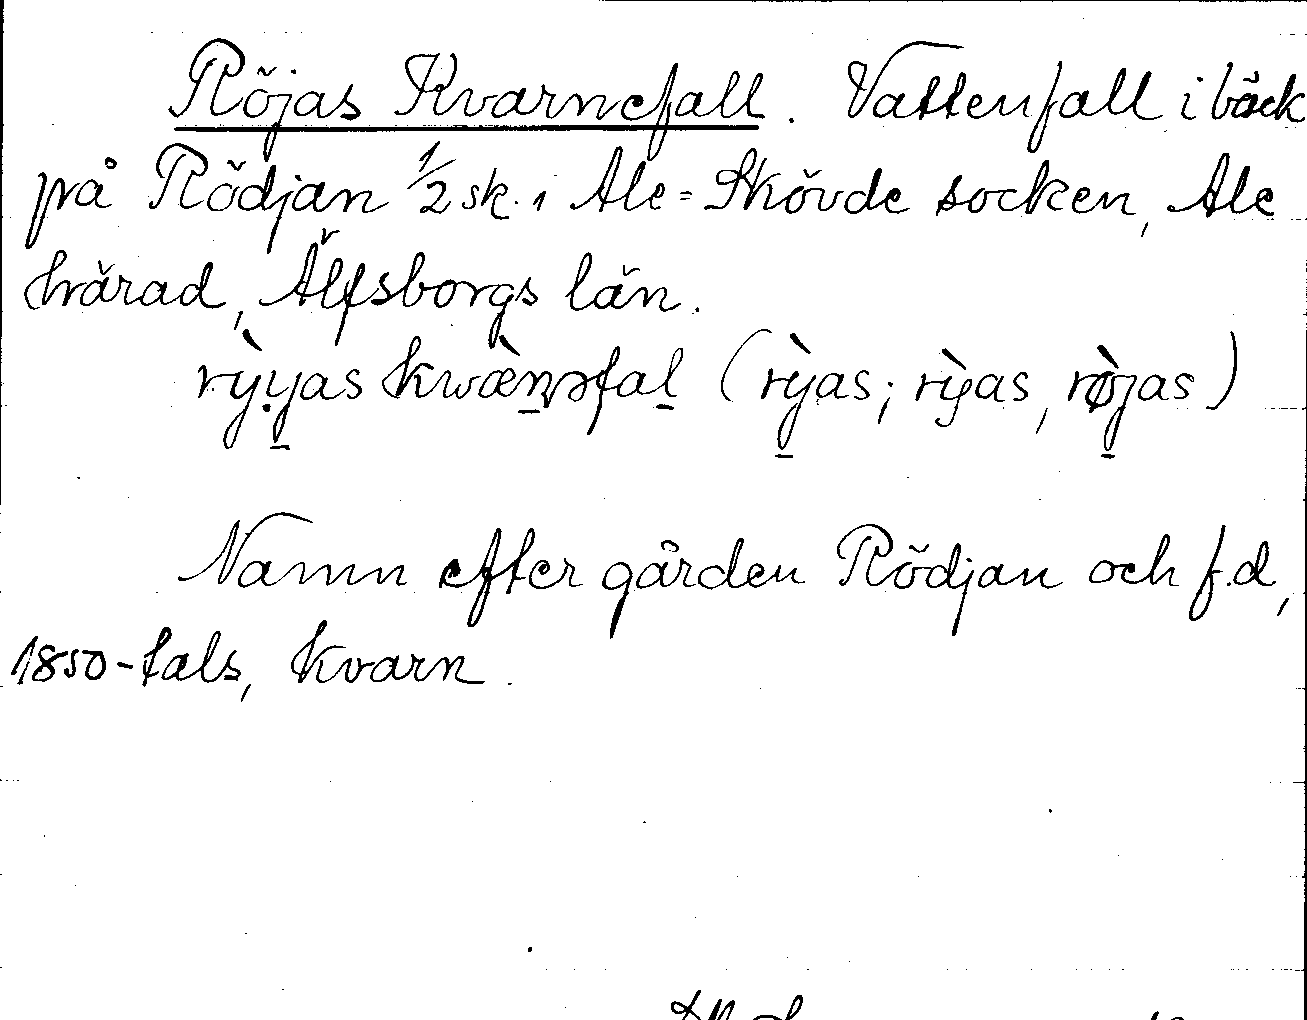 Röjas Kvarnefall. Vattenfall i bäck
på Rödjan 1/2 sk. i Ale-Skövde socken, Ale
härad, Älfsborgs län.
rỳyas kwæ̀nəfal (rỳas; rỳas, rø̀jas)
Namn efter gården Rödjan och f.d,
1850-tals, kvarn.